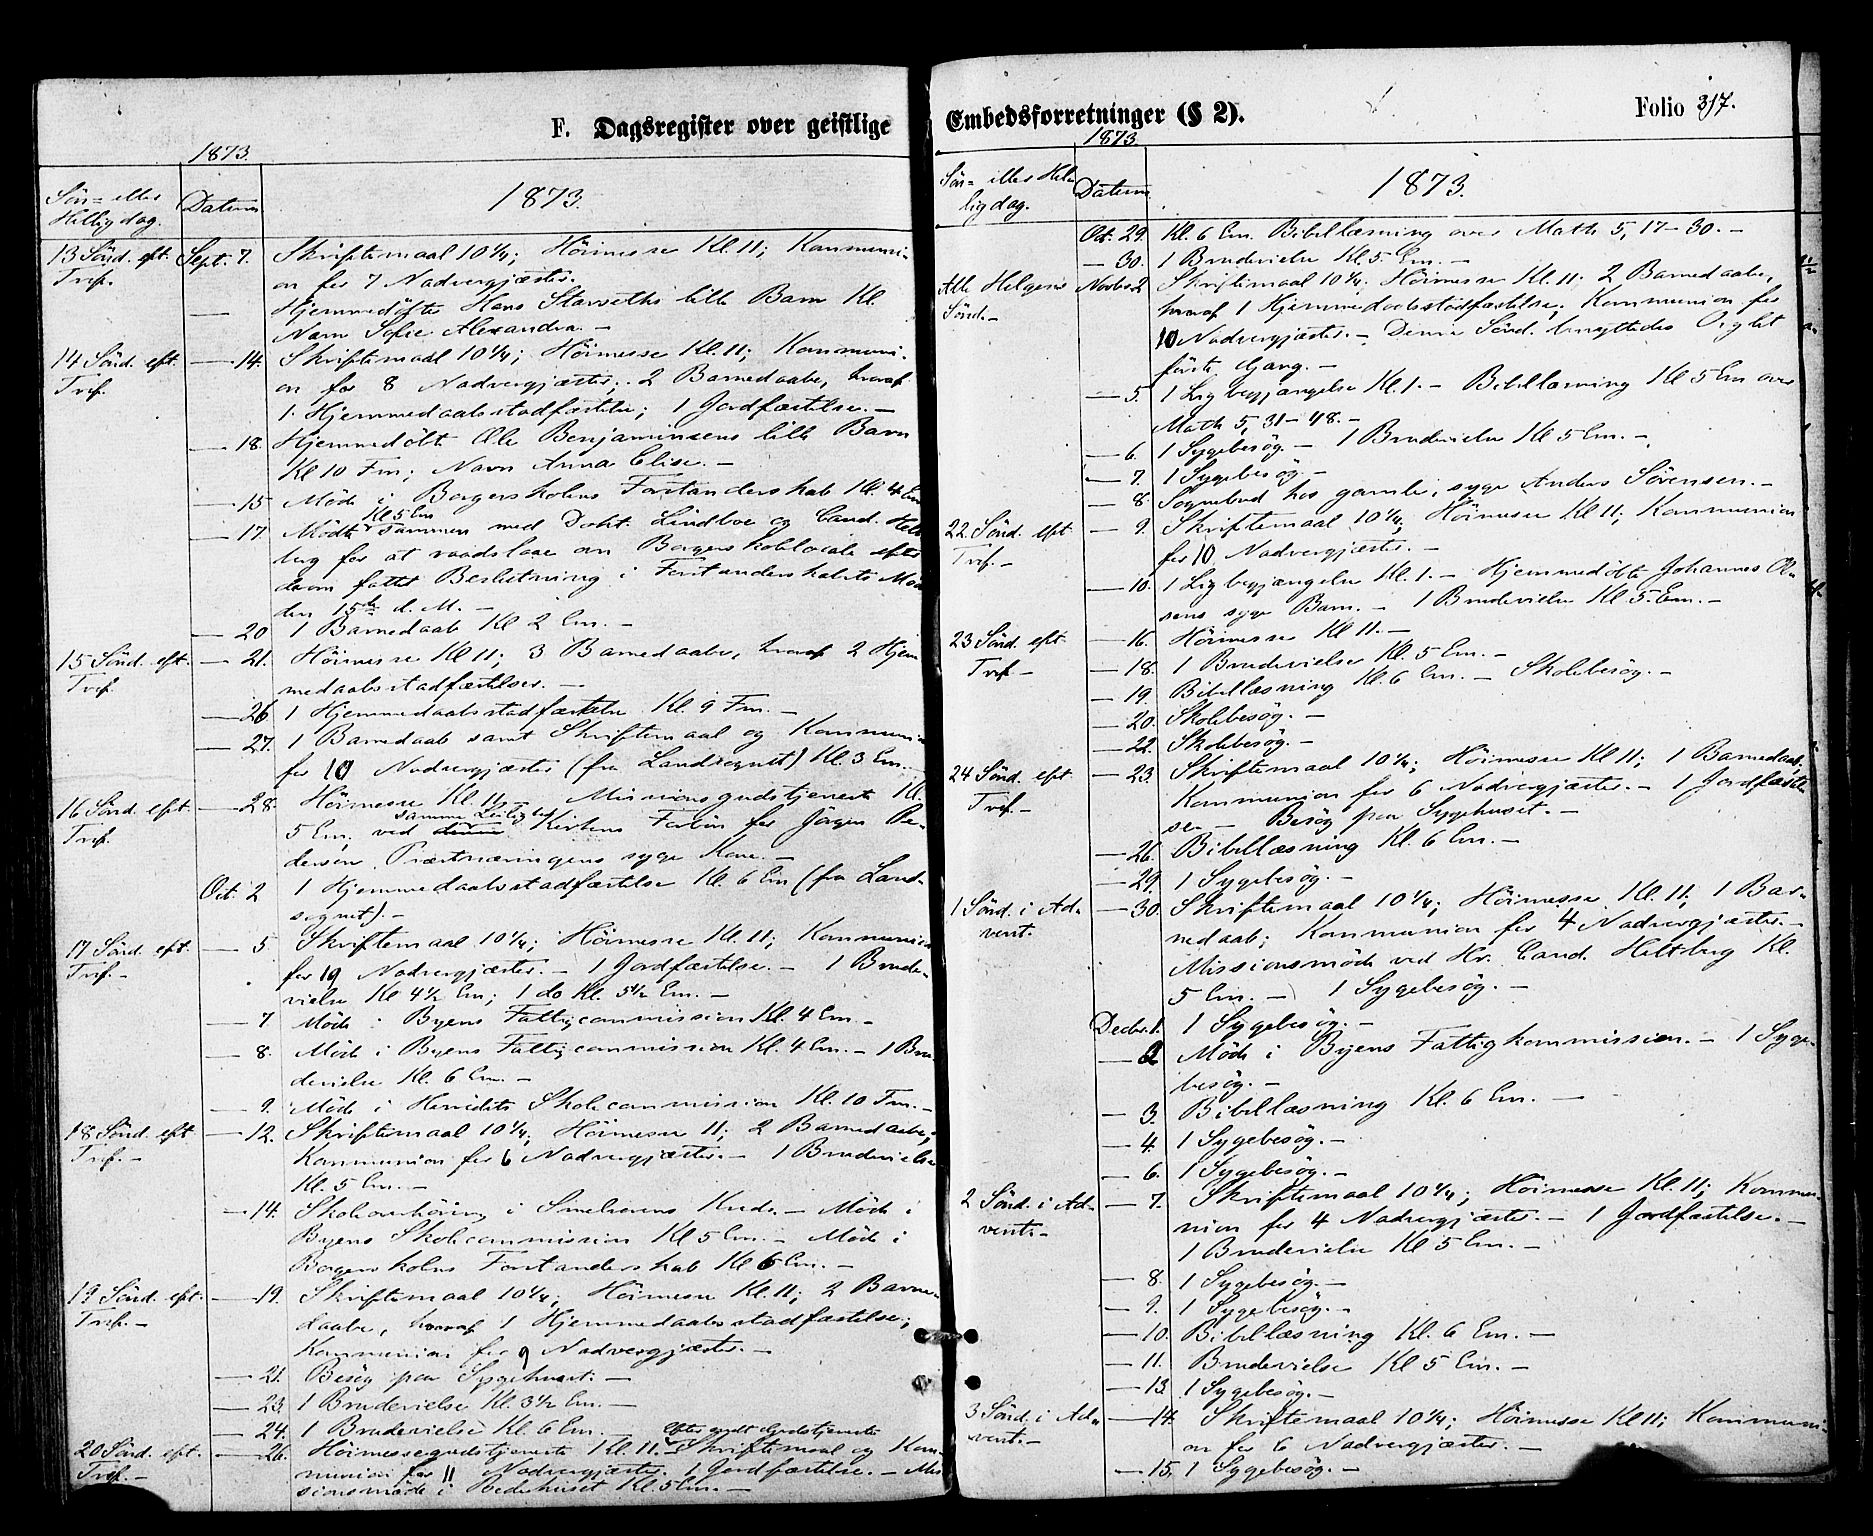 F. Dagsregister over geistlige
1873.
Søn- eller Helligdag. Datum. 1873.
13 Sönd. eft. Tref. Sept. 7. Skriftemaal 10 1/4; Höimesse Kl. 11; Kommuni-
on for 7 Nadvergjæster.
— Hjemmedöbte Hans Starseths lille Barn Kl
Navn Sofie Alexandra. —
14 Sönd. eft. Tref. — 14. Skriftemaal 10 1/4; Höimesse Kl. 11; Kommuni-
on for 8 Nadvergjæster; 2 Barnedaabe, hvoraf
1 Hjemmedaabsstadfæstelse; 1 Jordfæstelse. —
— 18. Hjemmedöbt Ole Benjaminsens lille Barn
Kl 10 Fm; Navn Anna Elise. —
— 15 Möde i Borgerskolens Forstanderskab Kl. 4 Em
Kl 5 Em
— 17. Mödte sammen med Dokt. Lindboe og Cand. Helt
berg for at raadslaae om Borgerskolelocale efter
derom fattet Beslutning i Forstanderskabets Möde
den 15de d. M. —
— 20 1 Barnedaab Kl 2 Em. —
15 Sönd. eft. Tref. — 21. Höimesse Kl 11; 3 Barnedaabe, hvoraf 2 Hjem
medaabsstadfæstelser. —
— 26 1 Hjemmedaabsstadfæstelse Kl. 9 Fm. —
— 27. 1 Barnedaab samt Skriftemaal og Kommunion
for 10 Nadvergjæster (fra Landsognet) Kl. 3 Em.
16 Sönd. eft. Tref. — 28. Höimesse Kl. 11 — Missionsgudstjeneste Kl.
samme Leilighed
5 Em; ved Kirkens Forbön for Jörgen Pe-
dersen syge Kone. —
Oct. 2 1 Hjemmedaabsstadfæstelse Kl. 6 Em (fra Land-
sognet). —
17 Sönd. eft. Tref. — — 5 Skriftemaal 10 1/4; Höimesse Kl. 11; Kommunion
for 19 Nadvergjæster. — 1 Jordfæstelse. — 1 Brude-
vielse Kl 4 1/2 Em; 1 do Kl. 5 1/2 Em. —
— 7 Möde i Byens Fattigcommission Kl. 4 Em. —
— 8. Möde i Byens Fattigcommission Kl. 4 Em. — 1 Bru
devielse Kl. 6 Em. —
— 9. Möde i Herredets Skolecommission Kl. 10 Fm. —
18 Sönd. eft Tref. — — 12. Skriftemaal 10 1/4; Höimesse 11; 2 Barnedaabe;
Kommunion for 6 Nadvergjæster. — 1 Brudevielse
Kl. 5 Em. —
— 14. Skoleovhöring i Kreds. — Möde i
Byens Skolecommission Kl 5 Em. — Möde i
Borgerskolens Forstanderskab Kl 6 Em. —
19 Sönd. eft. Tref. — — 19. Skriftemaal 10 1/4; Höimesse Kl. 11; 2 Barne-
daabe, hvoraf 1 Hjemmedaabsstadfæstelse;
Kommunion for 9 Nadvergjæster. —
— 21. Besög paa Sygehuset. —
— 23. 1 Brudevielse Kl. 3 1/2 Em. —
— 24. 1 Brudevielse Kl. 6 Em. —
efter endt Gudstjeneste
20 Sönd. eft. Tref. — — 26. Höimessegudstjeneste Kl. 11. Skriftemaal og Kom-
munion for 11 Nadvergjæster. 1 Jordfæstelse. — Mis
sionsmöde i Bedehuset Kl. 5 Em. —
Embedsforretninger (§ 2). Folio 317.
1873.
Søn- eller Helligdag. Datum. 1873.
Oct. 29. Kl. 6 Em. Bibellæsning over Math 5, 17-30. —
— 30. 1 Brudevielse Kl. 5 Em. —
Alle Helgens Sönd. — Novbr. 2 Skriftemaal 10 1/4; Höimesse Kl. 11; 2 Barnedaabe,
hvoraf 1 Hjemmedaabsstadfæstelse; Kommunion for
10 Nadvergjæster. — Denne Sönd. benyttedes Orglet
förste Gang. —
— 5. 1 Ligbegjængelse Kl. 1. — Bibellæsning Kl 5 Em over
Math 5, 31-48. —
— 6. 1 Sygebesög. — 1 Brudevielse Kl 5 Em. —
— 7. 1 Sygebesög. —
— 8. Sognebud hos gamle, syge Anders Sörensen. —
22. Sönd. eft Tref. — — 9. Skriftemaal 10 1/4; Höimesse Kl 11; Kommunion
for 10 Nadvergjæster. —
— 10. 1 Ligbegjængelse Kl. 1. — Hjemmedöbte Johannes Ol-
sens syge Barn. — 1 Brudevielse Kl 5 Em. —
23 Sönd. eft Tref — — 16. Höimesse Kl 11. —
— 18. 1 Brudevielse Kl. 5 Em. —
— 19. Bibellæsning Kl. 6 Em. — Skolebesög. —
— 20. Skolebesög. —
— 22. Skolebesög. —
24 Sönd. eft Tref. — — 23. Skriftemaal 10 1/4; Höimesse Kl 11; 1 Barnedaab;
Kommunion for 6 Nadvergjæster. — 1 Jordfæstel
se. — Besög paa Sygehuset. —
— 26. Bibellæsning Kl. 6 Em. —
— 29. 1 Sygebesög. —
1 Sönd. i Advent. — — 30. Skriftemaal 10 1/4; Höimesse Kl. 11; 1 Bar-
nedaab; Kommunion for 4 Nadvergjæster. —
Missionsmöde ved Hr. Cand. Heltberg Kl.
5 Em. — 1 Sygebesög. —
Decbr. 1. 1 Sygebesög. —
— 2 Möde i Byens Fattigkommission. — 1 Syge-
besög. —
— 3. Bibellæsning Kl. 6 Em. —
— 4. 1 Sygebesög. —
— 6. 1 Sygebesög. —
2 Sönd. i Advent. — — 7. Skriftemaal 10 1/4; Höimesse Kl. 11; Kommu-
nion for 4 Nadvergjæster. — 1 Jordfæstelse. —
1 Brudevielse Kl 5 Em. —
— 8. 1 Sygebesög. —
— 9. 1 Sygebesög. —
— 10. Bibellæsning Kl. 6 Em. —
— 11. Brudevielse Kl 5 Em. —
— 13. 1 Sygebesög. —
3 Sönd. i Advent. — — 14. Skriftemaal 10 1/4; Höimesse Kl 11; Kommuni-
on for 6 Nadvergjæster. —
— 15. 1 Sygebesög. —